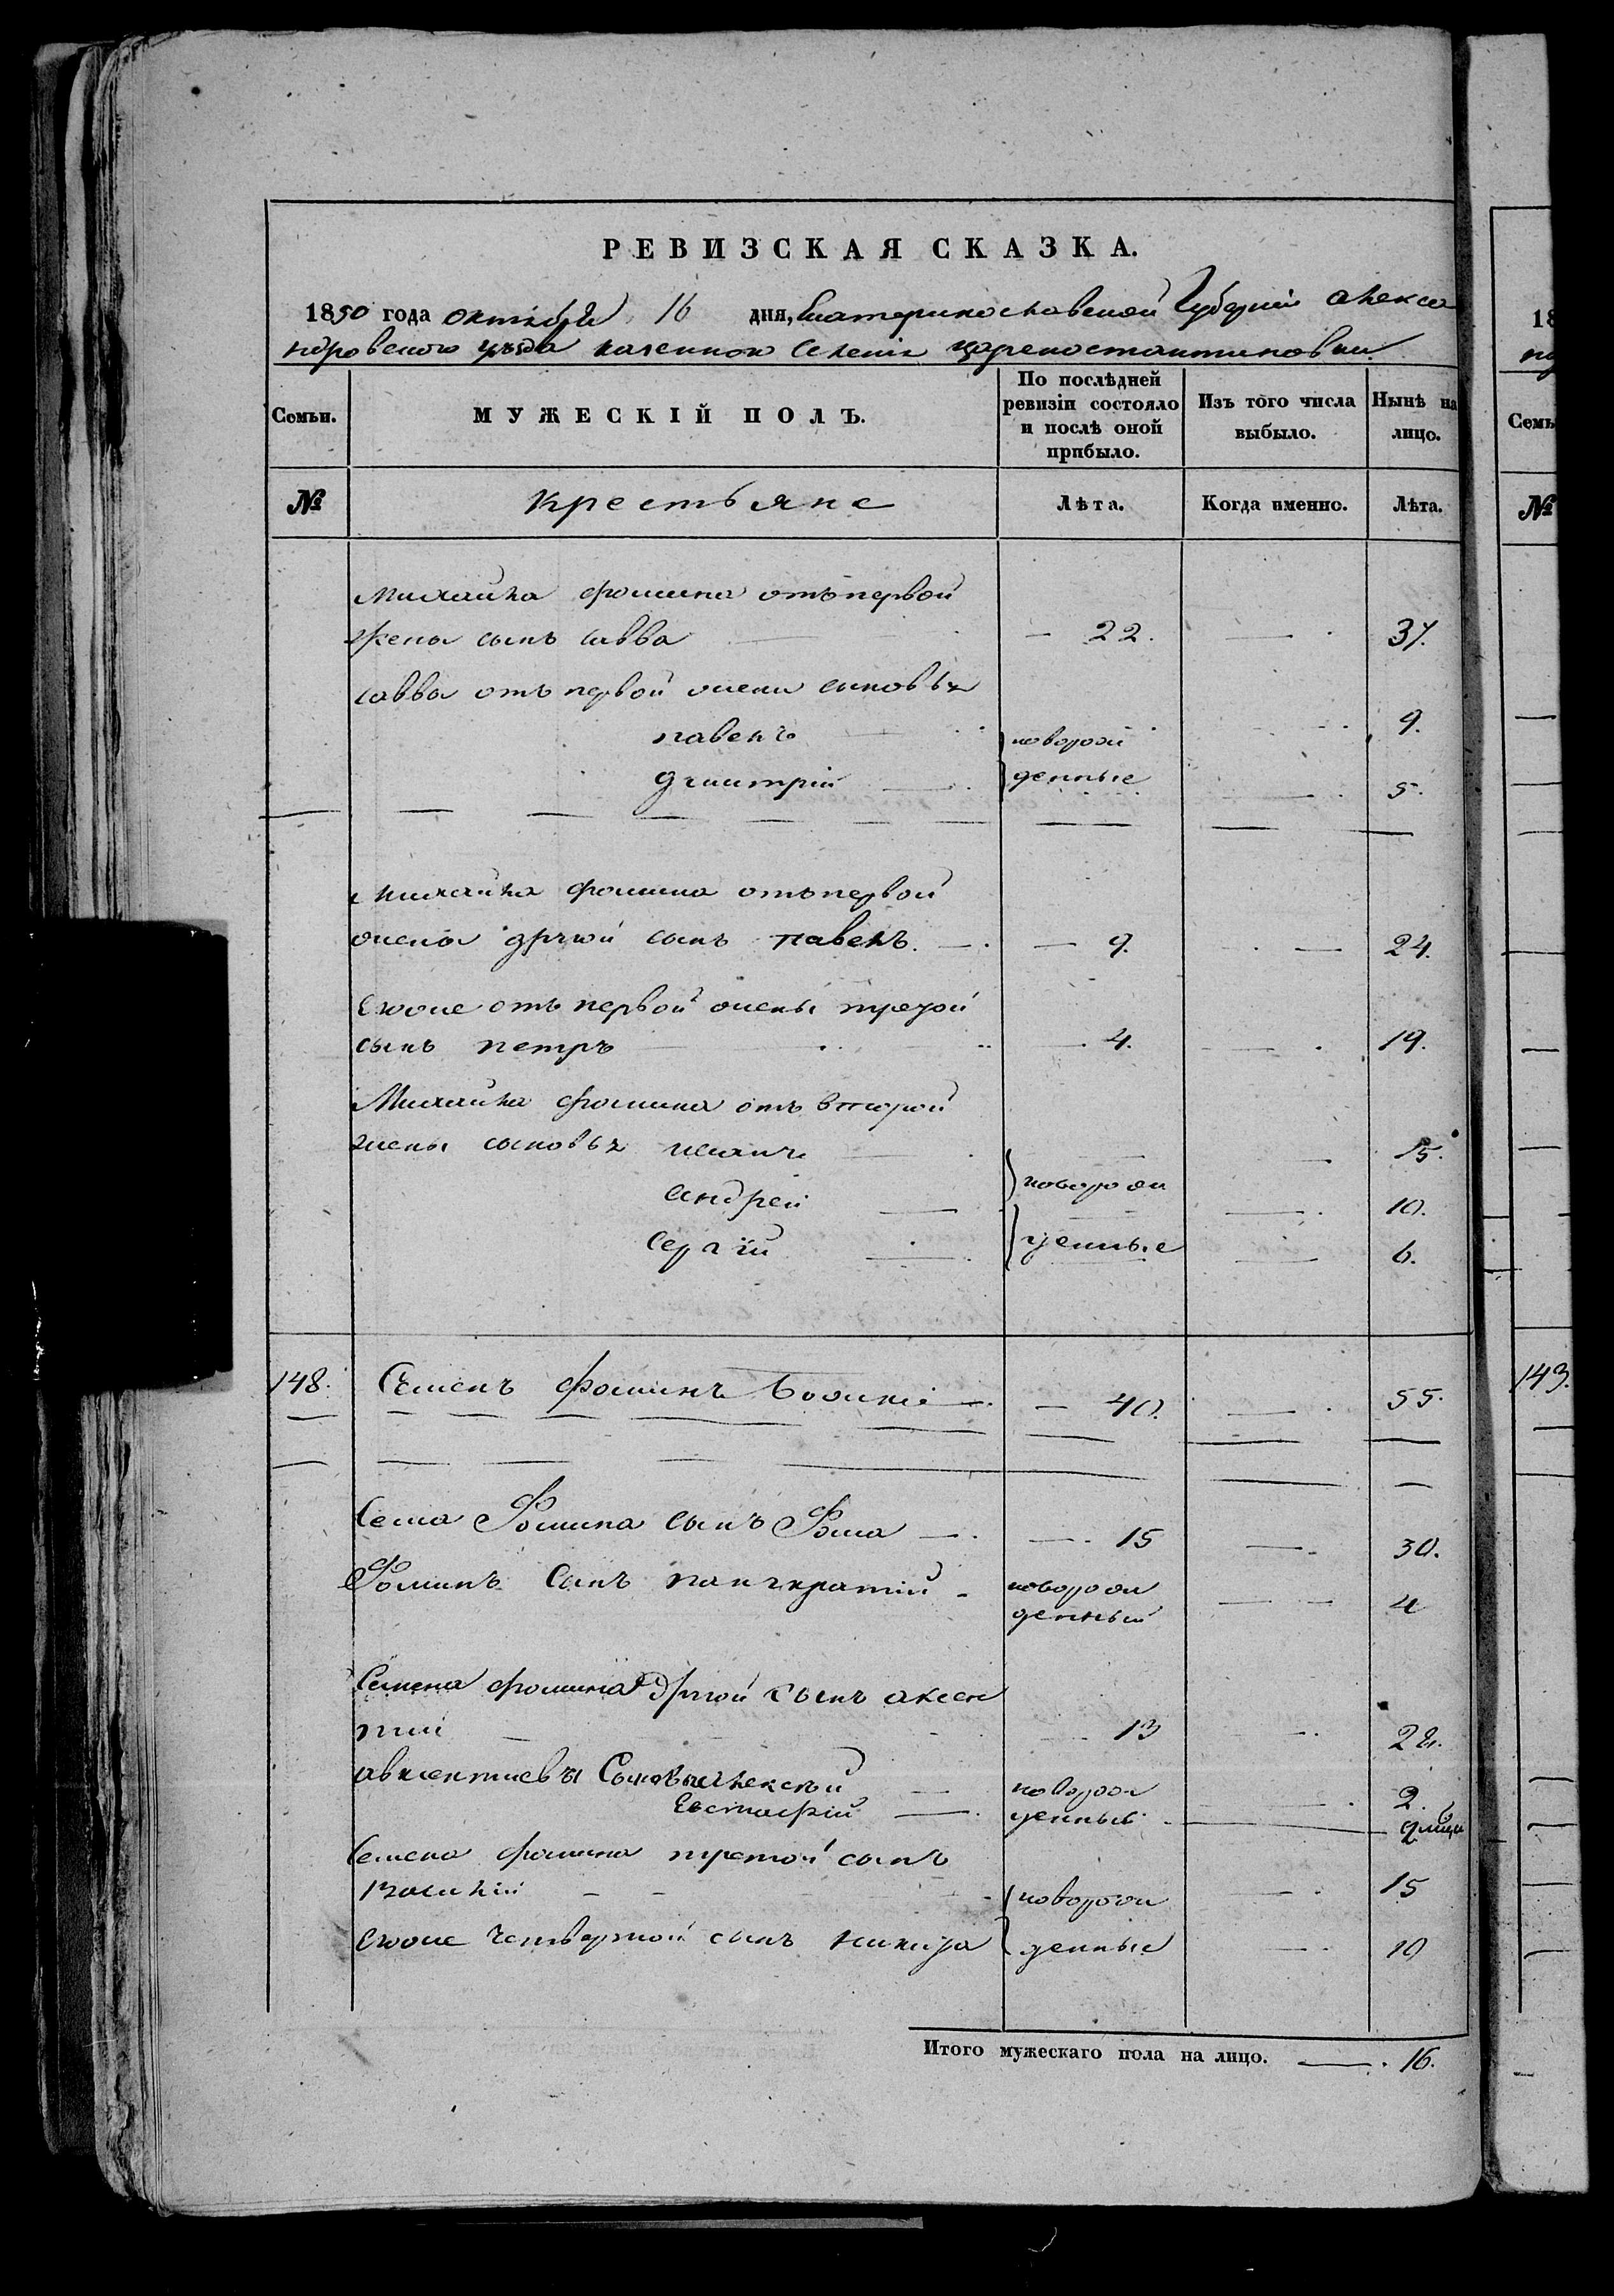 РЕВИЗСКАЯ СКАЗКА.
1850 года октября 16 дня, Екатеринославской Губернии Алекса
ндровского уезда казенного селения Цареконстантиновки
Семьи. МУЖЕСКІЙ ПОЛЪ. По послѣдней ревизіи состояло и послѣ оной прибыло. Изъ того числа выбыло. Нынѣ на лицо.
№ Крестьяне Лѣта. Когда именно. Лѣта.
Михайла Фомина отъ первой
жены сынъ Савва — 22. — 37.
Савва отъ первой жены сыновья
Павелъ новорож 9.
Дмитрій денные 5.
Михайла Фомина отъ первой
жены другой сынъ Павелъ — 9. — 24.
Егоже отъ первой жены третой
сынъ Петръ — 4. — 19.
Михайла Фомина отъ второй
жены сыновья 15.
Андрей новорож 10.
Сергій денные 6.
148. Семенъ Фоминъ — 40. — 55.
Сема Фомина сынъ Фома — 15 — 30.
Фоминъ сынъ Панкратий новорож
денный 4
Семена Фомина другой сынъ Аксен
тий — 13 — 28.
Авксентиевы Сыновья Алексей новорож 2.
Евстафій денные
Семена Фомина третой сынъ
новорож 15
Егоже четвертой сынъ Никита денные 10
Итого мужескаго пола на лицо. — 16.
18
Семь
№
143.